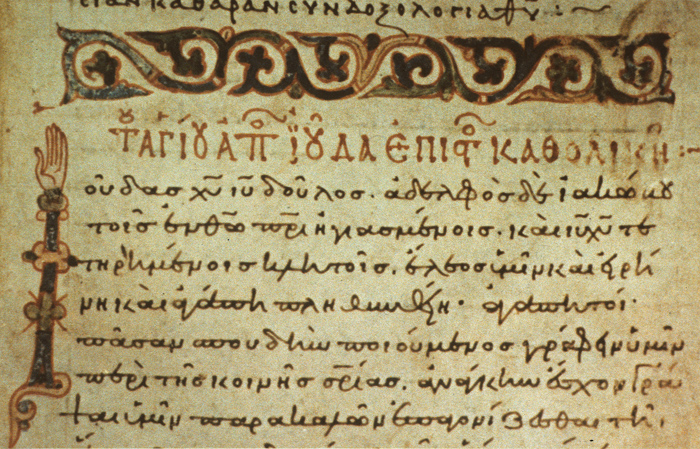 καθαραν συνδοξολογια θυ :~
τȣ ΑΓΙȣ ΑΠ ΙȣΔΑ ΕΠΙΣΤ ΚΑΘΟΛΙΚΗ :~
Ιούδας χ̅υ̅ ι̅υ̅ δοῦλος. ἀδελφὸς δὲ ἰακώβου
τοῖς ἐν θ̅ω̅ π̅ρ̅ι̅ ἡγιασμένοις. καὶ ι̅υ̅ χ̅υ̅ τε
τηρημένοις κλητοῖς. ἔλεος ὑμῖν καὶ εἰρή
νη καὶ ἀγάπη πληθυνθείη· ἀγαπητοί·
πᾶσαν σπουδὴν ποιούμενος γράφειν ὑμῖν
περὶ τῆς κοινῆς σ̅ρ̅ιας. ἀνάγκην ἔσχον γρά
ψαι ὑμῖν παρακαλῶν ἐπαγωνίζεσθαι τῆ